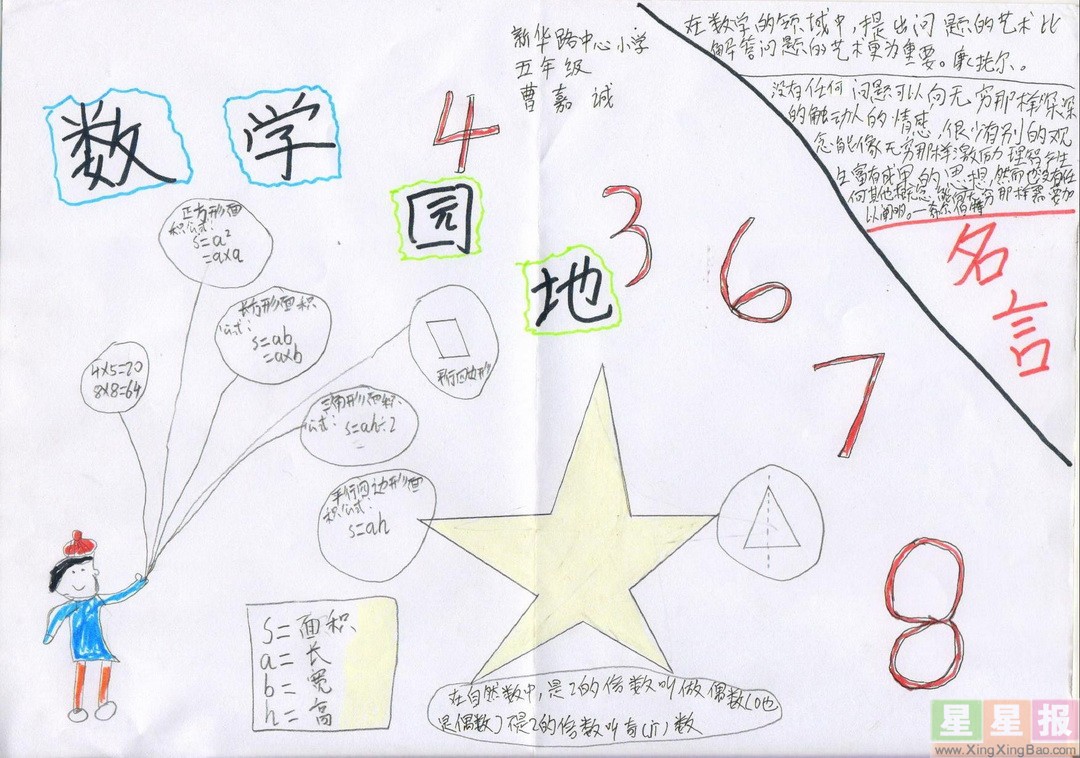 新华路中心小学
五年级
曹嘉诚
数学
园
地
4
3
6
7
8
在数学的领域中,提出问题的艺术比
解答问题的艺术更为重要。康托尔。
没有任何问题可以向无穷那样深深
的触动人的情感,很少有别的观
念能像无穷那样激励理智产生
生富有成果的思想,然而也没有任
何其他概念能向无穷那样需要加
以阐明。—希尔伯特
名
言
正方形面
积公式:
S=a²
=a×a
长方形面积
公式:
S=ab
=a×b
4×5=20
8×8=64
平行四边形
三角形面积
公式: S=ah÷2
平行四边形面
积公式:
S=ah
S=面积
a=长
b=宽
h=高
在自然数中,是2的倍数叫做偶数(0也
是偶数)不是2的倍数叫奇(jī)数
星星报
www.XingXingBao.com